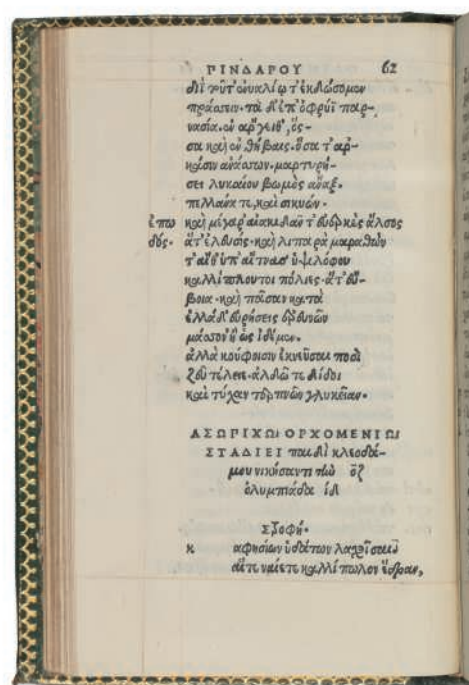 ΠΙΝΔΑΡΟΥ 62
πράσσειν· τὰ δ' ἐπ' ὀφρύϊ παρ-
νασία· ἐν ἄργειθ', ὅσ-
σα καὶ ἐν θήβαις· ὅσα τ' ἀρ-
κάσιν ἀνάσσων· μαρτυρή-
σει λυκαίου βωμὸς ἄναξ·
πελλάνα τε, καὶ σικυών·
ἐπω καὶ μέγαρ' αἰακιδᾶν τ' εὐερκὲς ἄλσος
δός· ἅτ' ἐλευσὶς· καὶ λιπαρὰ μαραθὼν
ταίθ' ὑπ' αἴτνας ὑψιλόφου
καλλίπλουτοι πόλιες· ἅτ' εὔ-
βοια· καὶ πᾶσαν κατὰ
ἑλλάδ' εὑρήσεις ἐρευνῶν
μάσσον' ἢ ὡς ἰδέμεν·
ἀλλὰ κούφοισιν ἐκνεῦσαι ποσὶ
ζεῦ τέλει· αἰδῶ τε δίδοι
καὶ τύχαν τερπνῶν γλυκεῖαν·
ΑΣΩΠΙΧΩΙ ΟΡΧΟΜΕΝΙΩΙ
ΣΤΑΔΙΕΙ παιδὶ κλεοδά-
μου νικήσαντι τὴν οζ
ὀλυμπιάδα ιδ
Στροφή·
κ αφησίων ὑδάτων λαχοῖσαι
αἵτε ναίετε καλλίπωλον ἕδραν,